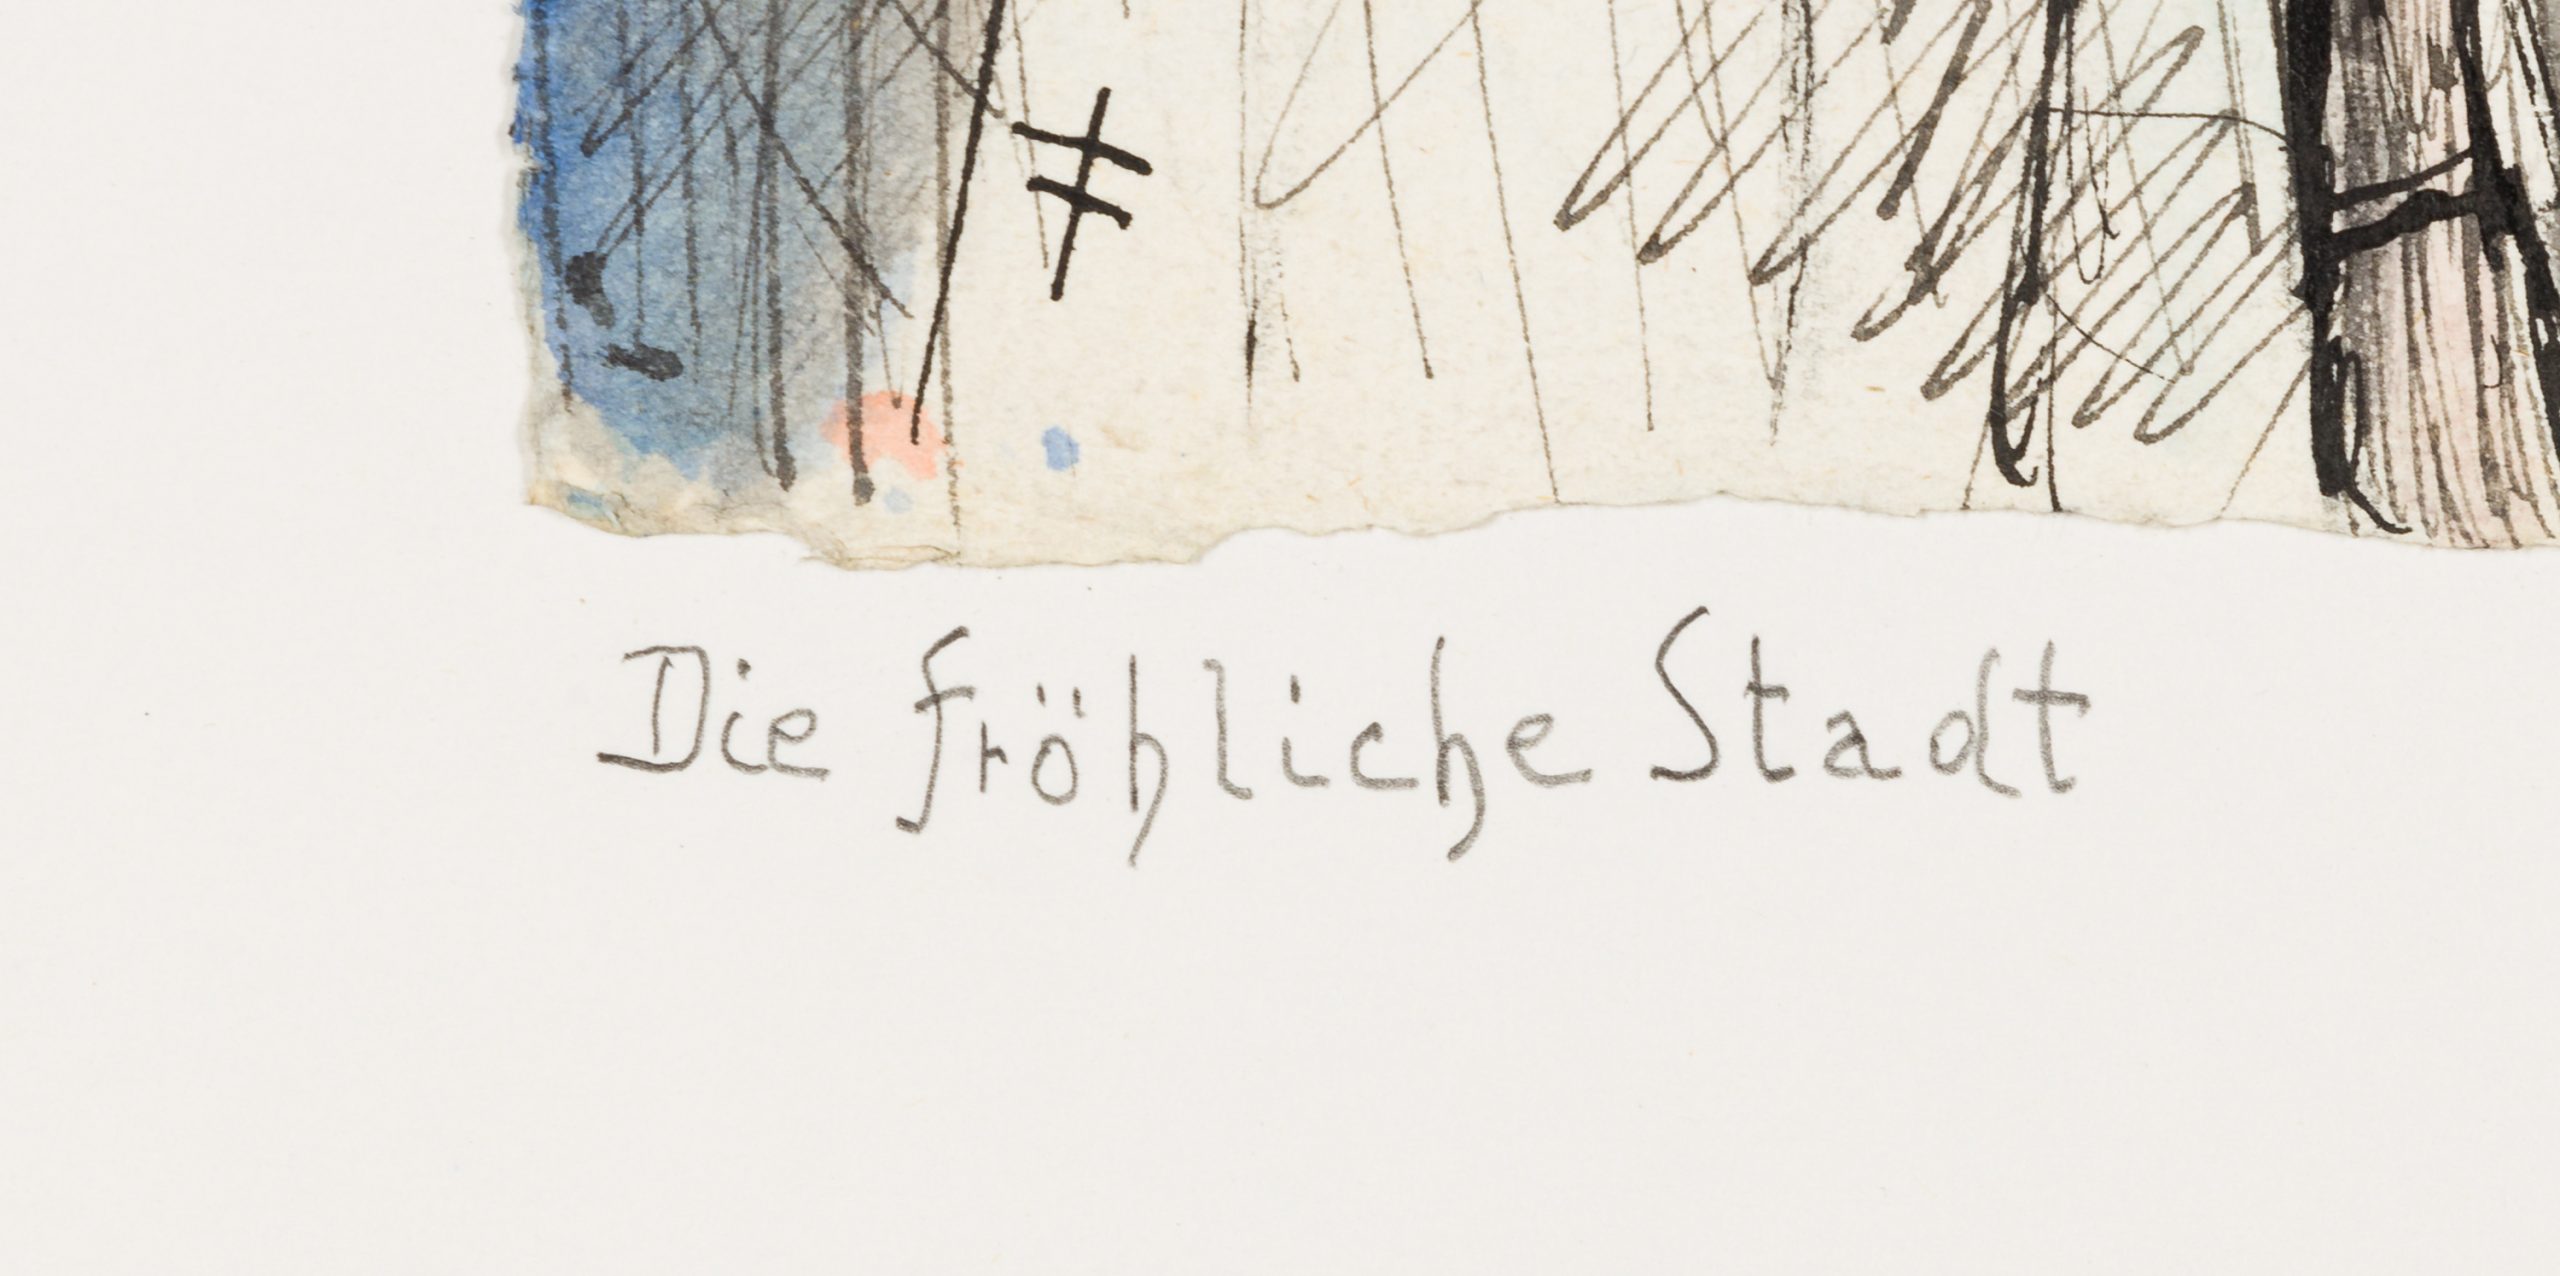 Die fröhliche Stadt